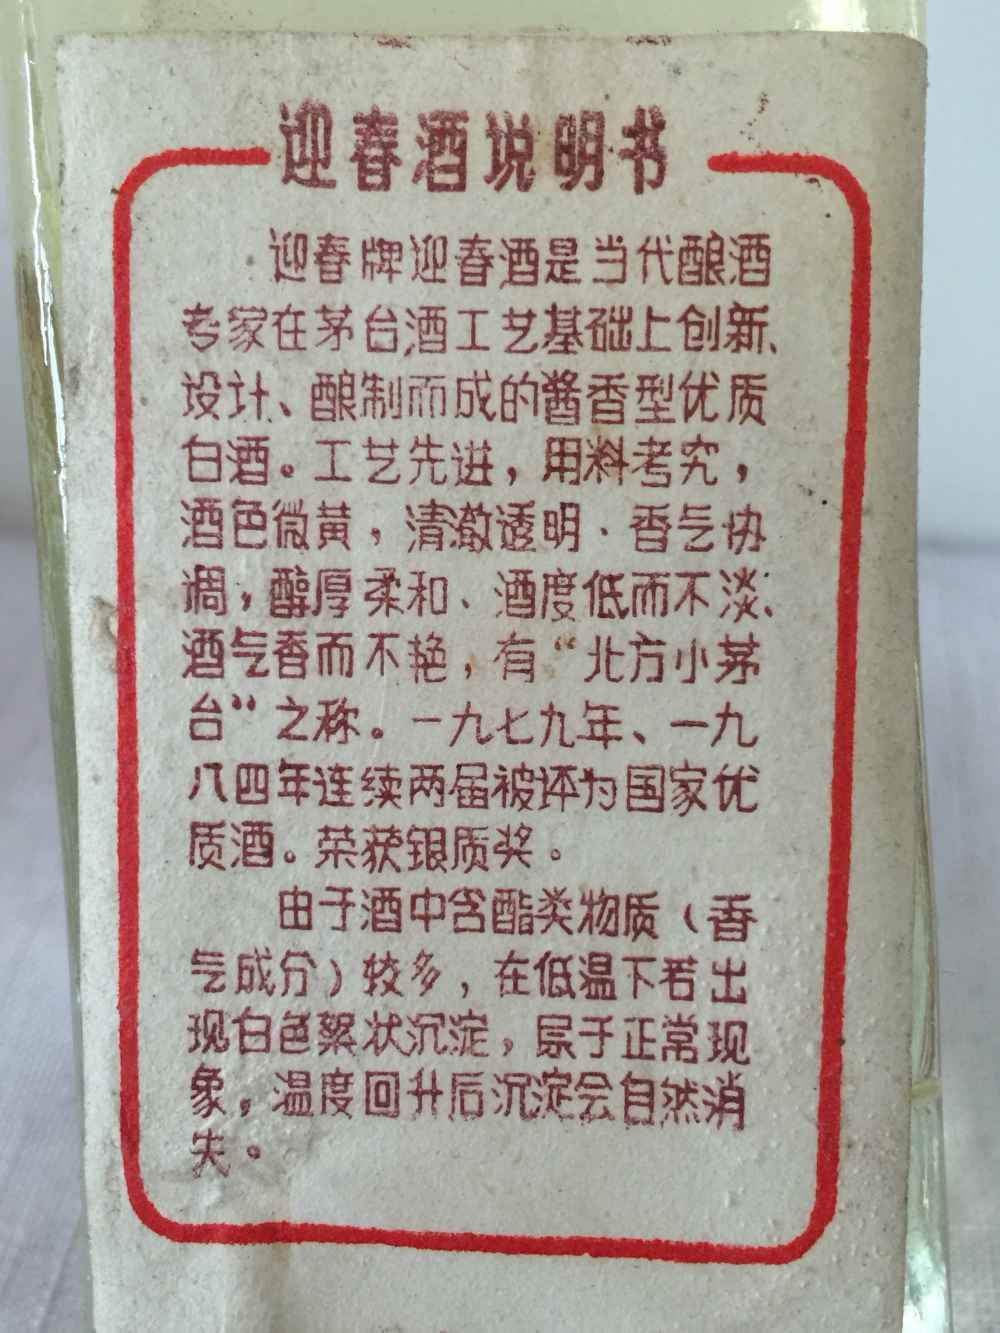 迎春酒说明书
迎春牌迎春酒是当代酿酒
专家在茅台酒工艺基础上创新、
设计、酿制而成的酱香型优质
白酒。工艺先进，用料考究，
酒色微黄，清澈透明·香气协
调，醇厚柔和、酒度低而不淡、
酒气香而不艳，有“北方小茅
台”之称。一九七九年、一九
八四年连续两届被评为国家优
质酒。荣获银质奖。
由于酒中含酯类物质（香
气成分）较多，在低温下若出
现白色絮状沉淀，属于正常现
象，温度回升后沉淀会自然消
失。